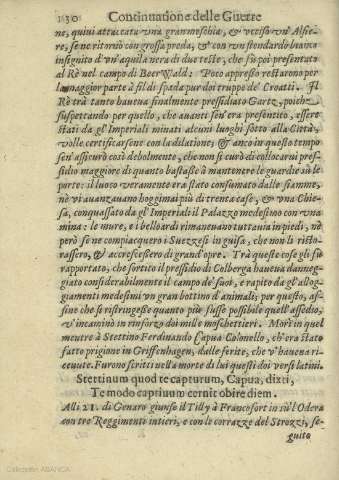 130 Continuatione delle Guerre
ne, quiui attaccata una gran mischia, & vcciso vn' Alfie-
re, se ne ritornò con grossa preda, & con vn stendardo bianco
insignito d'vn' aquila nera di due teste, che fù poi presentato
al Rè nel campo di BeerWald: Poco appresso restarono per
la maggior parte à fil di spada pur doi truppe de' Croatti. Il
Rè trà tanto haueua finalmente pressidiato Gartz, poiche
suspettando per quello, che auanti sen' era presentito, essere
stati da gl' Imperiali minati alcuni luoghi sotto alla Città,
volle certificarsene con la dilatione; & anco in questo tempo
sen' assicurò così debolmente, che non si curò di collocarui pres-
sidio maggiore di quanto bastasse à mantenere le guardie sù le
porte: il luoco veramente era stato consumato dalle fiamme,
nè vi auanzauano hoggimai più di trenta case, & vna Chie-
sa, conquassato da gl' Imperiali il Palazzo medesimo con vna
mina: le mure, e i belloardi rimaneuano tuttauia in piedi, ne
però se ne compiacquero i Suezzesi in guisa, che non li risto-
rassero, & accrescessero di grand'opre. Trà queste cose gli fù
rapportato, che sortito il pressidio di Colberga haueua danneg-
giato considerabilmente il campo de' suoi, e rapito da gl'allog-
giamenti medesimi vn gran bottino d'animali; per questo, af-
fine che si ristringesse quanto più fusse possibile quell'assedio,
v'incaminò in rinforzo doi mille moschettieri. Morì in quel
mentre à Stettino Ferdinando Capua Colonello, ch'era stato
fatto prigione in Griffenhagen, dalle ferite, che v'haueua ri-
ceuute. Furono scritti nella morte di lui questi doi versi latini.
Stettinum quod te capturum, Capua, dixti,
Te modo captiuum cernit obire diem.
Alli 21. di Genaro giunse il Tilly à Francofort in sù l'Odera
con tre Reggimenti intieri, e con le corrazze del Strozzi, se-
guito
Colección ABANCA